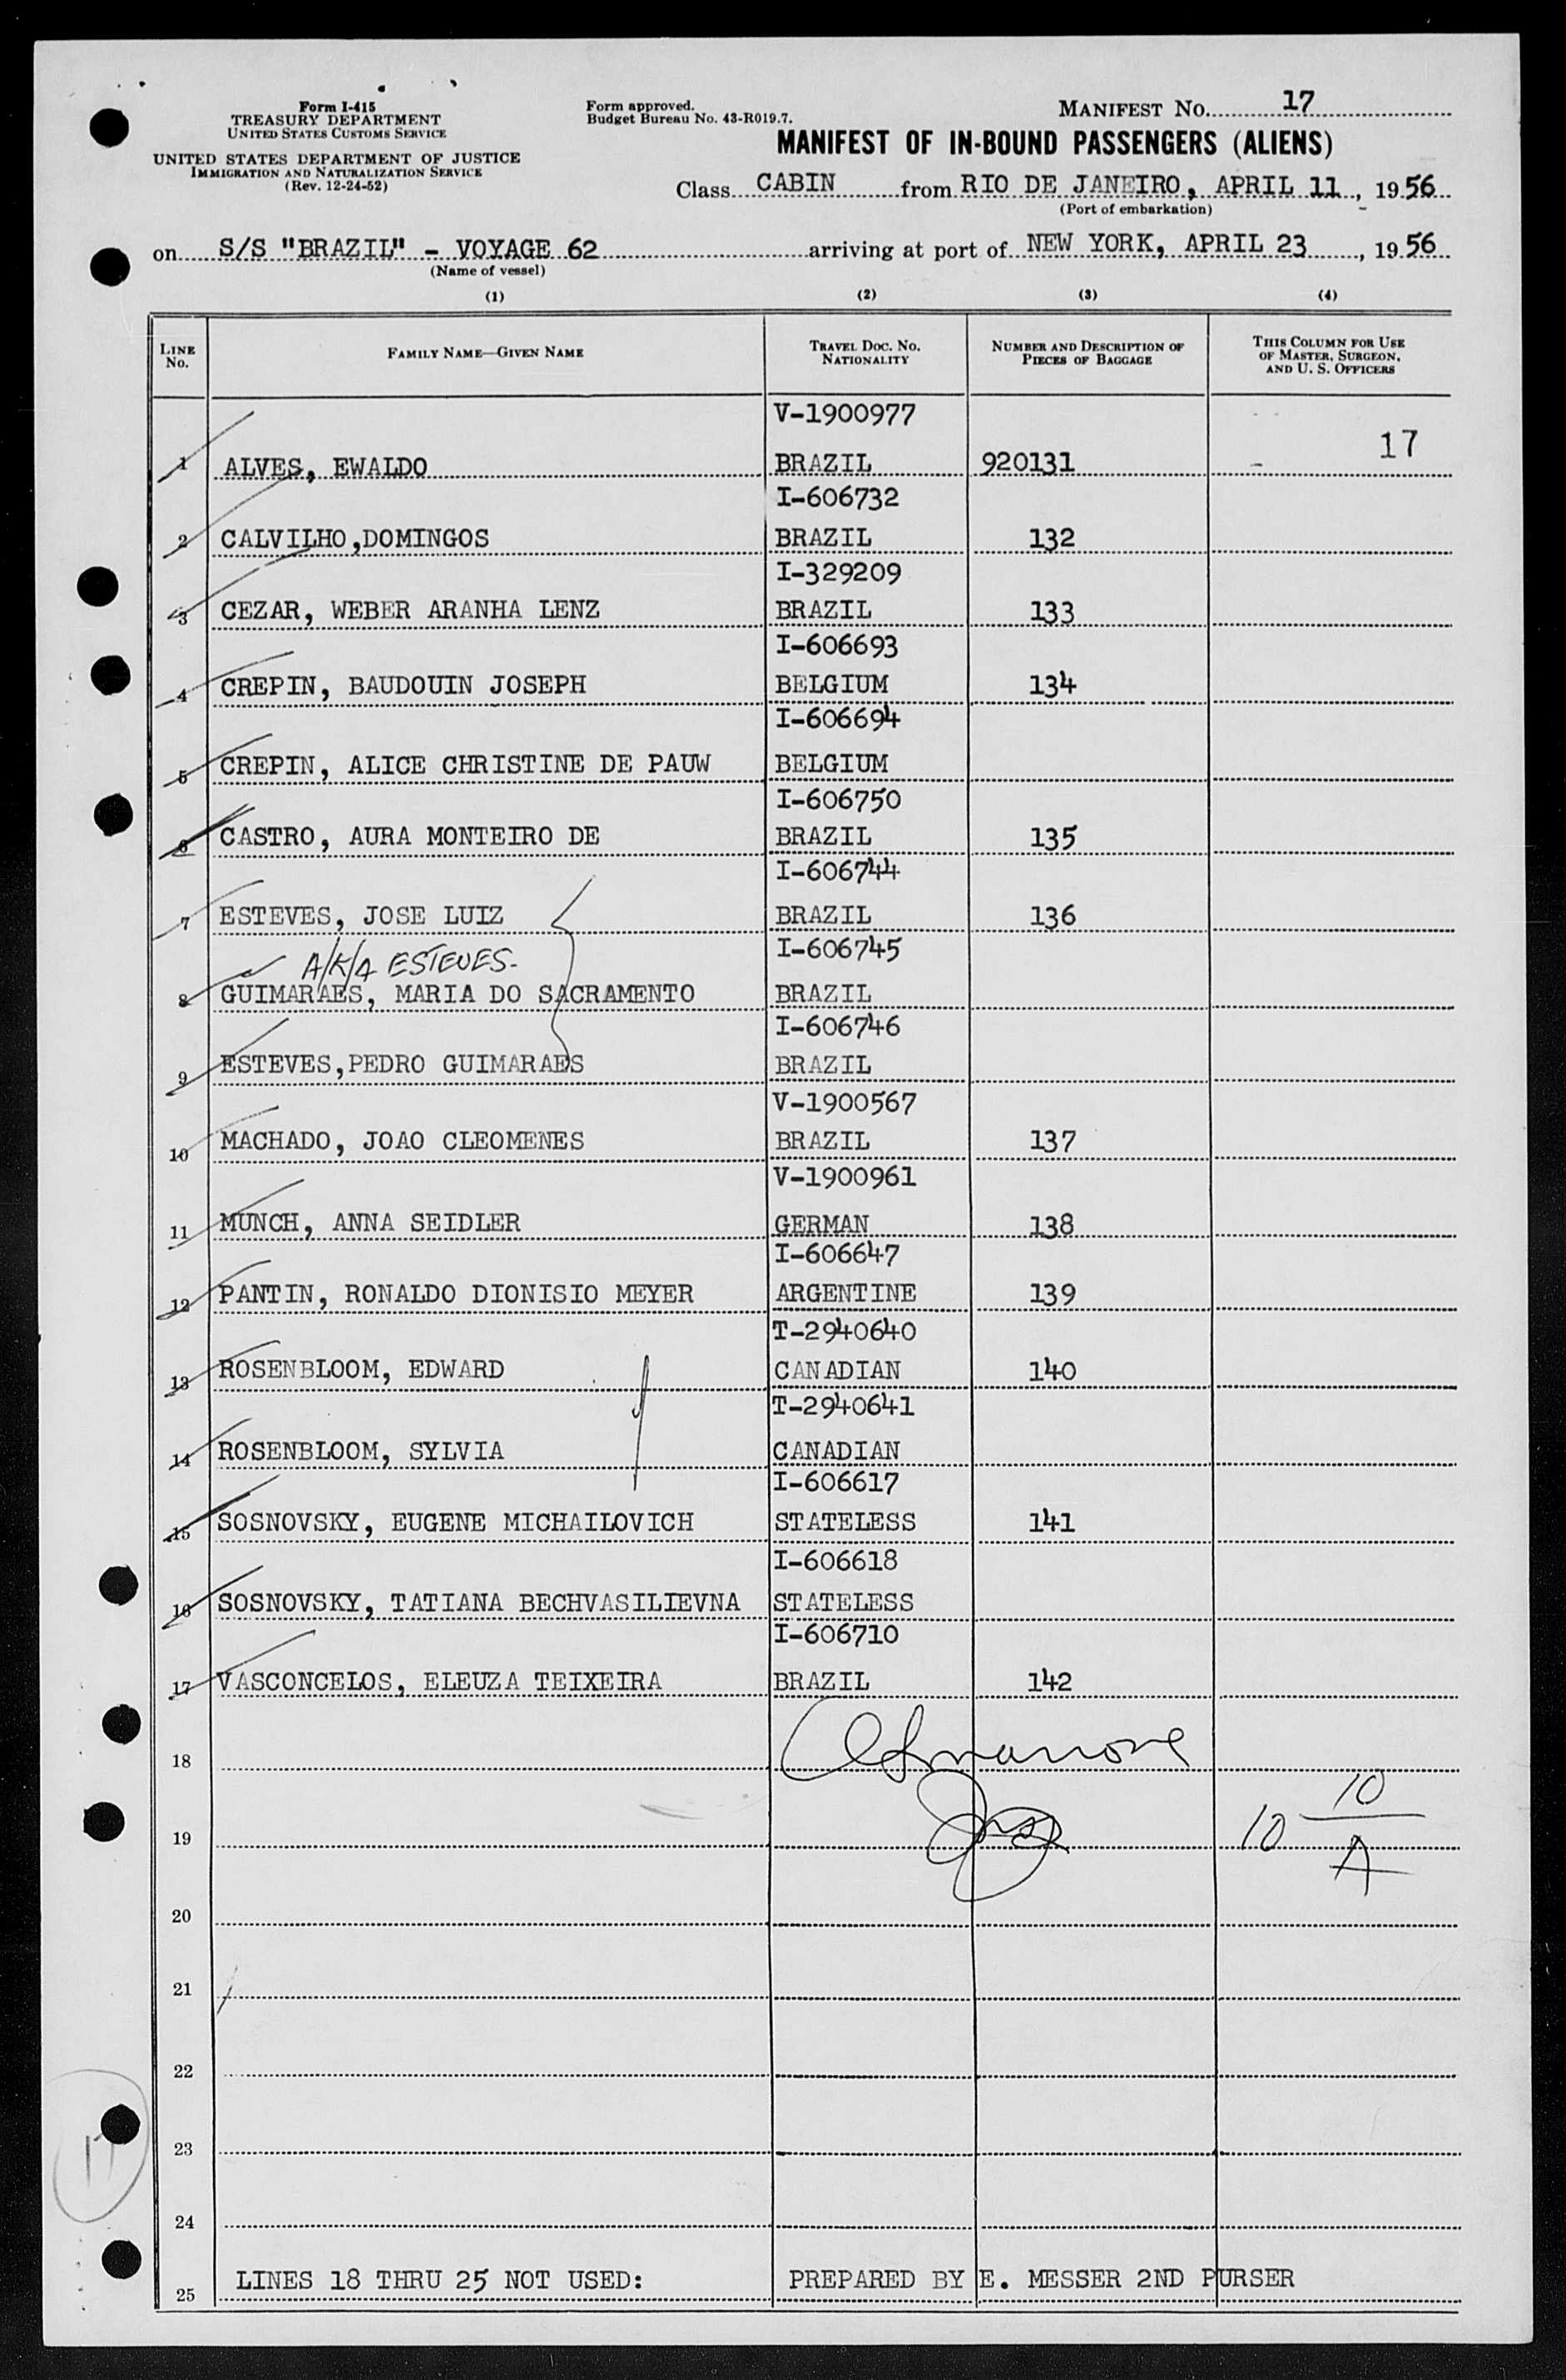 Form I-415
TREASURY DEPARTMENT
UNITED STATES CUSTOMS SERVICE
UNITED STATES DEPARTMENT OF JUSTICE
IMMIGRATION AND NATURALIZATION SERVICE
(Rev. 12-24-52)
Form approved.
Budget Bureau No. 43-R019.7.
MANIFEST NO. 17
MANIFEST OF IN-BOUND PASSENGERS (ALIENS)
Class CABIN from RIO DE JANEIRO, APRIL 11, 1956
(Port of embarkation)
on S/S "BRAZIL" - VOYAGE 62 arriving at port of NEW YORK, APRIL 23, 1956
(Name of vessel)
(1) (2) (3) (4)
LINE NO. FAMILY NAME—GIVEN NAME TRAVEL DOC. NO. NATIONALITY NUMBER AND DESCRIPTION OF PIECES OF BAGGAGE THIS COLUMN FOR USE OF MASTER, SURGEON, AND U. S. OFFICERS
V-1900977
1 ALVES, EWALDO BRAZIL 920131 17
I-606732
2 CALVILHO,DOMINGOS BRAZIL 132
I-329209
3 CEZAR, WEBER ARANHA LENZ BRAZIL 133
I-606693
4 CREPIN, BAUDOUIN JOSEPH BELGIUM 134
I-606694
5 CREPIN, ALICE CHRISTINE DE PAUW BELGIUM
I-606750
6 CASTRO, AURA MONTEIRO DE BRAZIL 135
I-606744
7 ESTEVES, JOSE LUIZ BRAZIL 136
A/K/A ESTEVES- I-606745
8 GUIMARAES, MARIA DO SACRAMENTO BRAZIL
I-606746
9 ESTEVES,PEDRO GUIMARAES BRAZIL
V-1900567
10 MACHADO, JOAO CLEOMENES BRAZIL 137
V-1900961
11 MUNCH, ANNA SEIDLER GERMAN 138
I-606647
12 PANTIN, RONALDO DIONISIO MEYER ARGENTINE 139
T-2940640
13 ROSENBLOOM, EDWARD CANADIAN 140
T-2940641
14 ROSENBLOOM, SYLVIA CANADIAN
I-606617
15 SOSNOVSKY, EUGENE MICHAILOVICH STATELESS 141
I-606618
16 SOSNOVSKY, TATIANA BECHVASILIEVNA STATELESS
I-606710
17 VASCONCELOS, ELEUZA TEIXEIRA BRAZIL 142
18
10
19 10 A
20
21
22
23
17
24
25 LINES 18 THRU 25 NOT USED: PREPARED BY E. MESSER 2ND PURSER